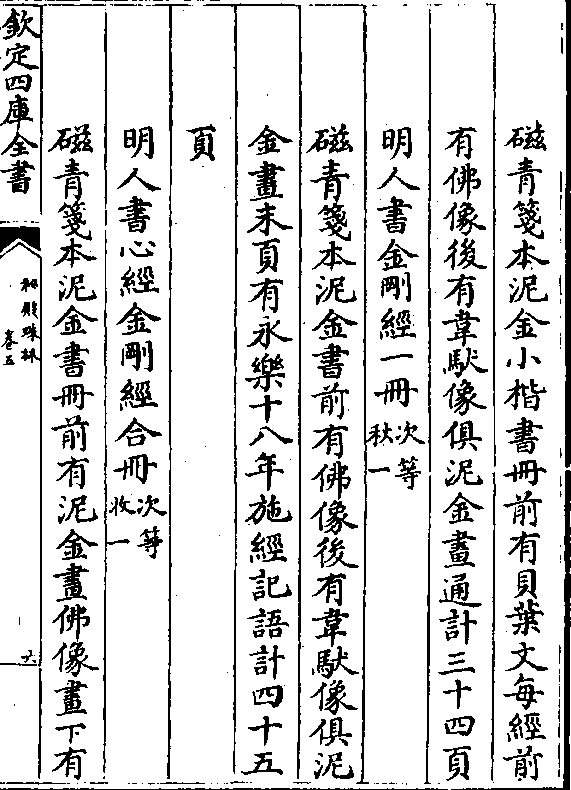 磁青箋本泥金小楷書冊前有貝葉文每經前
有佛像後有韋馱像俱泥金畫通計三十四頁
明人書金剛經一冊次等秋一
磁青箋本泥金書前有佛像後有韋馱像俱泥
金畫末頁有永樂十八年施經記語計四十五
頁
明人書心經金剛經合冊次等收一
磁青箋本泥金書冊前有泥金畫佛像畫下有
欽定四庫全書
秘殿珠林
卷五
六